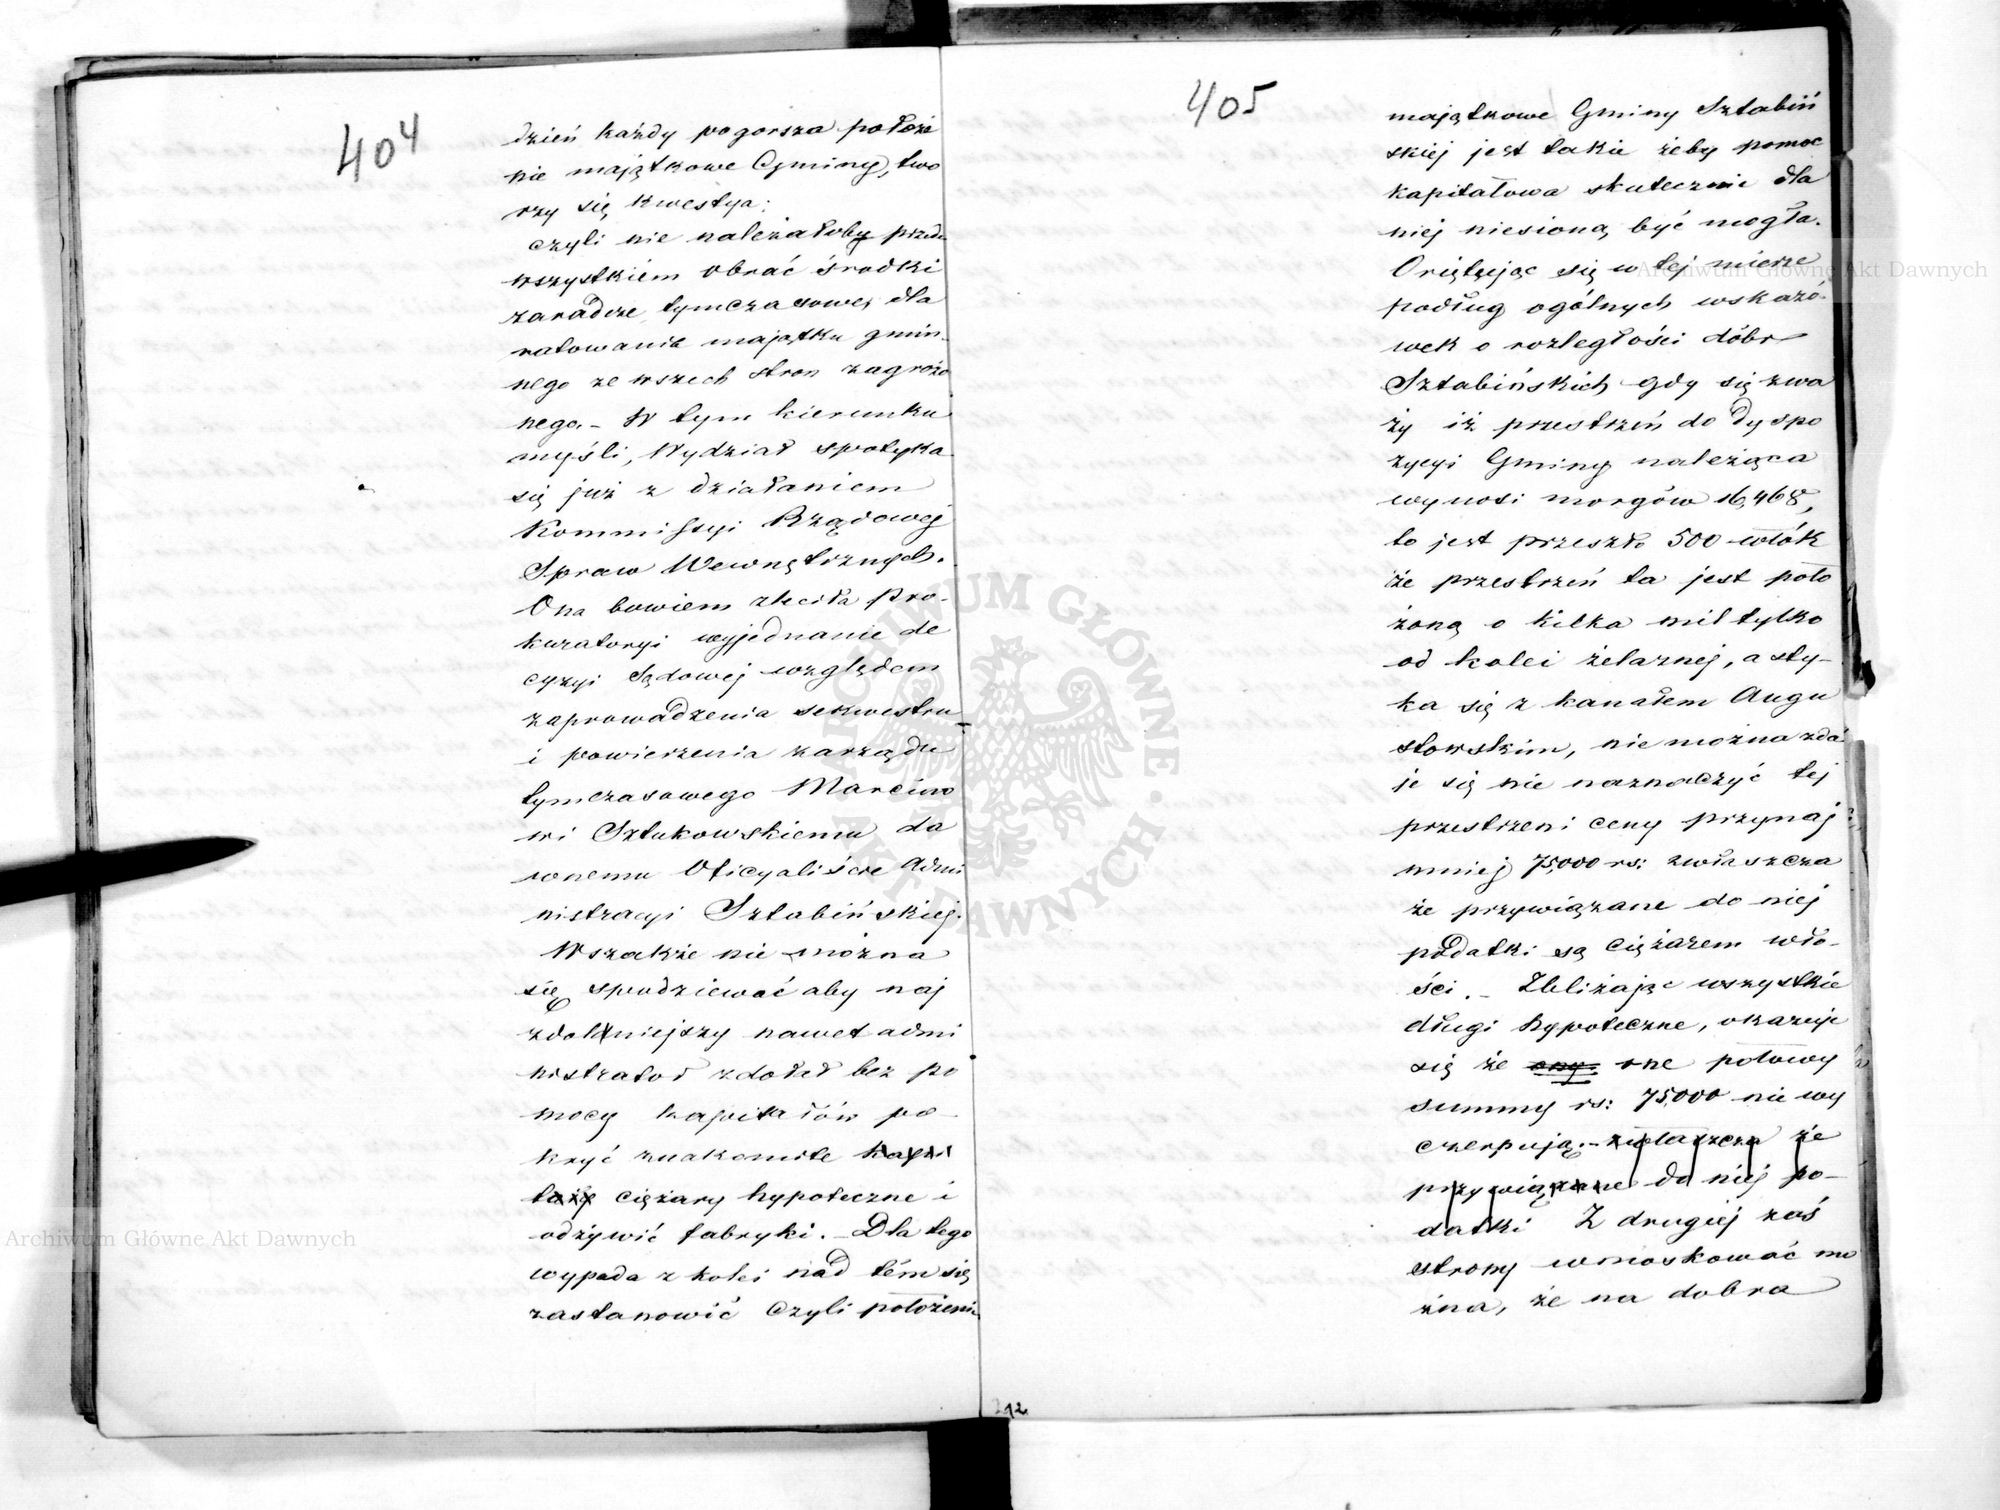 404
dzień każdy pogorsza położe
nie majątkowe Gminy, two
rzy się kwestya:
czyli nie należałoby przede
wszystkiém obrać środki
zaradcze tymczasowe, dla
ratowania majątku gmin-
nego ze wszech stron zagrożo
nego. – W tym kierunku
myśli, Wydział spotyka
się już z działaniem
Kommissyi Rządowej
Spraw Wewnętrznych.
Ona bowiem zleciła Pro-
kuratoryi wyjednanie de
cyzyi Sądowej względem
zaprowadzenia sekwestru
i powierzenia zarządu
tymczasowego Marcino
wi Sztukowskiemu da
wnemu Oficyaliście Admi
nistracyi Sztabińskiej.
Wszakże nie można
się spodziewać aby naj
zdolniejszy nawet admi
nistrator zdołał bez po
mocy kapitałów po-
kryć znakomite kapi
tały ciężary hypoteczne i
odżywić fabryki. – Dla tego
wypada z kolei nad tém się
zastanowić czyli położenie
405
majątkowe Gminy Sztabiń
skiej jest takie żeby pomoc
kapitałowa skutecznie dla
niej niesioną być mogła.
Oriętując się w tej mierze
podług ogólnych wskazó-
wek o rozległości dóbr
Sztabińskich gdy się zwa
ży iż przestrzeń do dyspo
zycyi Gminy należąca
wynosi morgów 16,468,
to jest przeszło 500 włók
że przestrzeń ta jest poło
żoną o kilka mil tylko
od kolei żelaznej, a sty-
ka się z kanałem Augu
stowskim, nie można zda
je się nie naznaczyć tej
przestrzeni ceny przynaj
mniej 75,000 rs: zwłaszcza
że przywiązane do niej
podatki są ciężarem wło-
ści. – Zbliżając wszystkie
długi hypoteczne, okazuje
się że ony one połowy
summy rs: 75,000 nie wy
czerpują. – zwłaszcza że
przywiązane do niej po-
datki Z drugiej zaś
strony wnioskować mo
żna, że na dobra
212
Archiwum Główne Akt Dawnych
Archiwum Główne Akt Dawnych
ARCHIWUM GŁÓWNE · AKT DAWNYCH ·